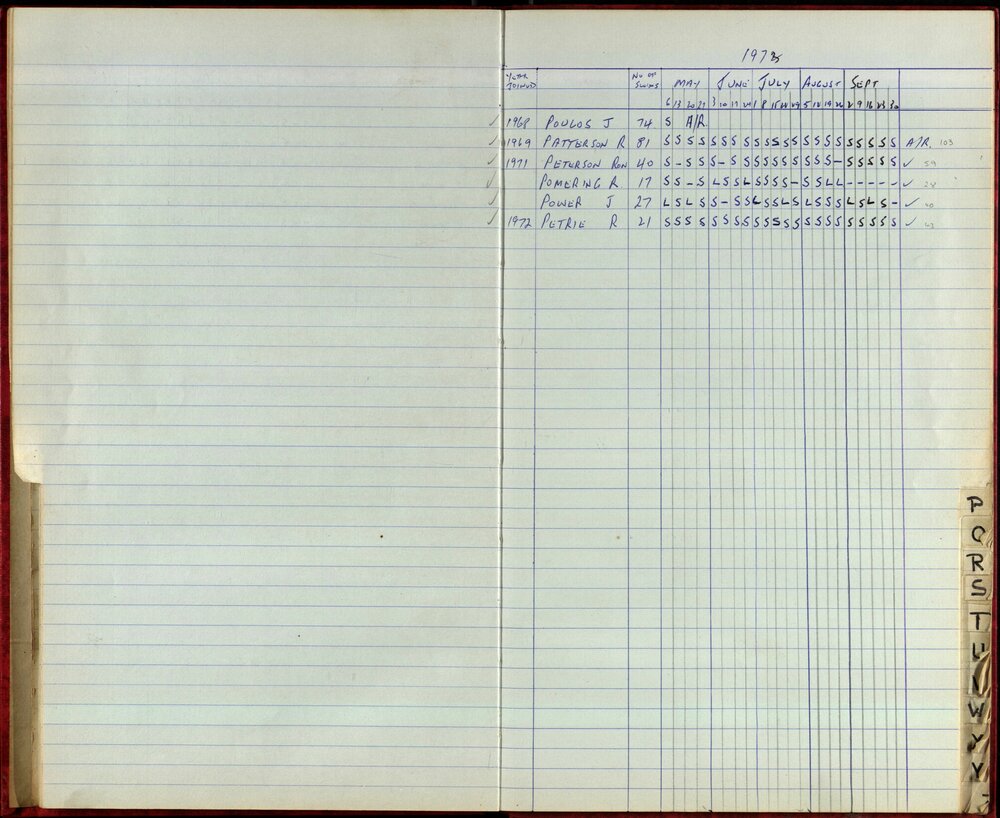 1973
YEAR JOINED NO OF SWIMS MAY JUNE JULY AUGUST SEPT
6 13 20 27 3 10 17 24 1 8 15 22 29 5 12 19 26 2 9 16 23 30
✓ 1968 POULOS J 74 S A/R.
✓ 1969 PATTERSON R 81 S S S S S S S S S S S S S S S S S S S S S S A/R. 103
✓ 1971 PETERSON RON 40 S - S S S - S S S S S S S S S S - S S S S S ✓ 59
✓ POMERING R 17 S S - S L S S L S S S S - S S L L - - - - - ✓ 28
✓ POWER J 27 L S L S S - S S L S S L S L S S S L S L S - ✓ 40
✓ 1972 PETRIE R 21 S S S S S S S S S S S S S S S S S S S S S S ✓ 43
P
Q
R
S
T
U
W
Y